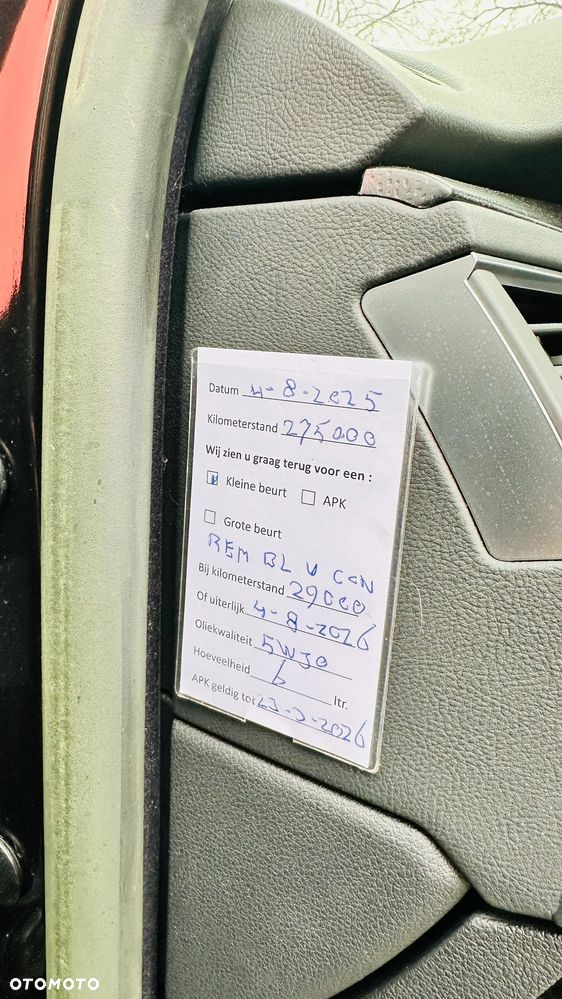 Datum 4-8-2025
Kilometerstand 275000
Wij zien u graag terug voor een :
Kleine beurt APK
Grote beurt
REM BL V CON
Bij kilometerstand 29000
Of uiterlijk 4-8-2026
Oliekwaliteit 5W30
Hoeveelheid 6 ltr.
APK geldig tot 23-3-2026
OTOMOTO